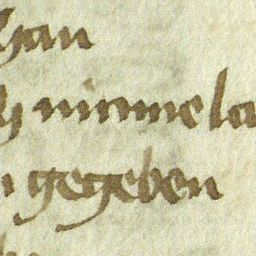 han
h nimme la
n gegeben